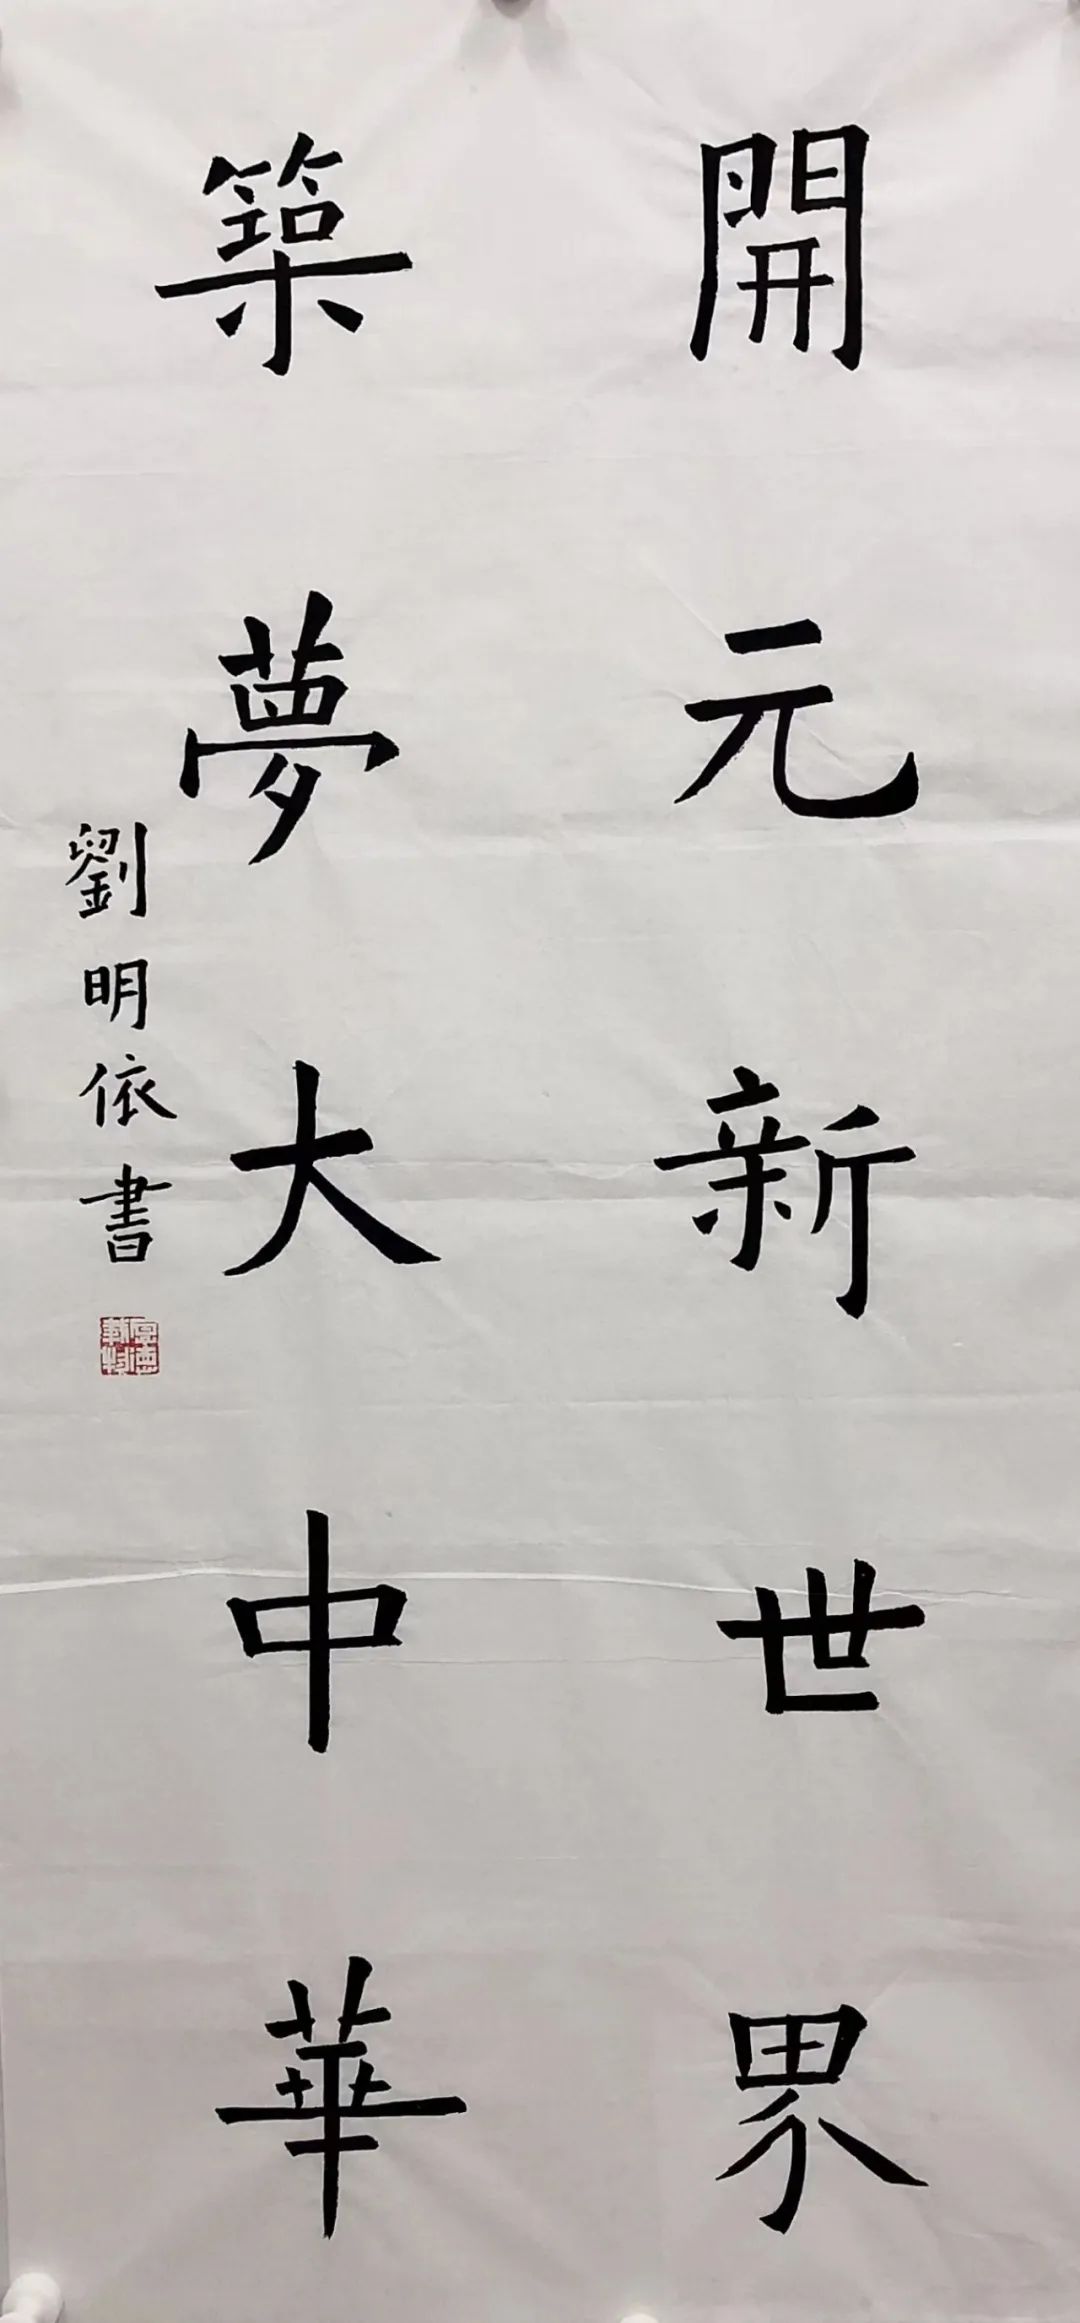 開元新世界
築夢大中華
劉明依書